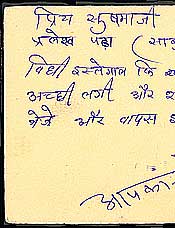 प्रिय सुषमाजी
प्रलेख पढ़ा (
विधी इस्तेगाल कि
अच्छी लगी और
भेजे और वापस
आपका